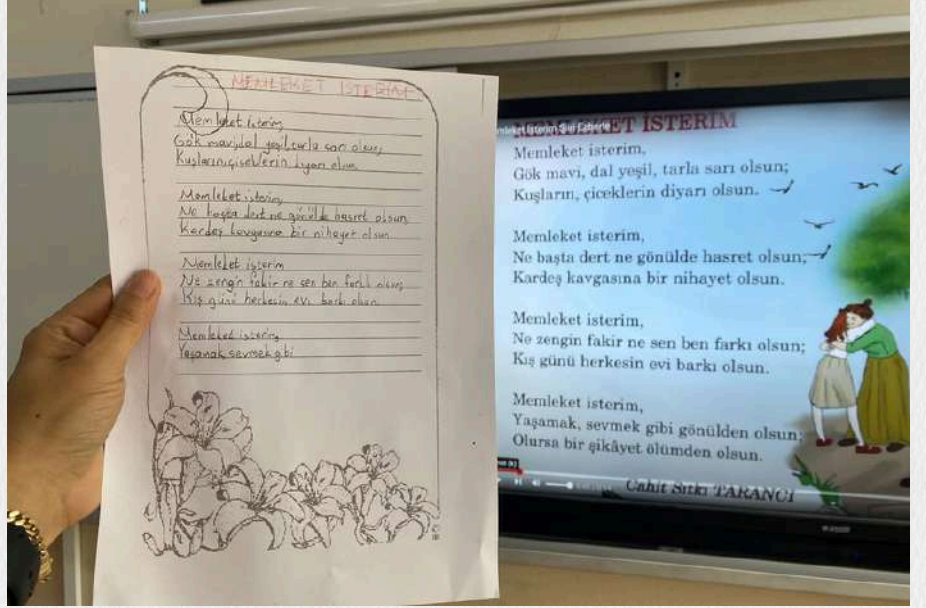 MEMLEKET İSTERİM
Memleket isterim,
Gök mavi, dal yeşil, tarla sarı olsun;
Kuşların, çiceklerin diyarı olsun.
Memleket isterim
Ne başta dert ne gönülde hasret olsun
Kardeş kavgasına bir nihayet olsun
Memleket isterim
Ne zengin fakir ne sen ben farkı olsun;
Kış günü herkesin evi barkı olsun
Memleket isterim,
Yaşamak, sevmek gibi
MEMLEKET İSTERİM
Memleket isterim,
Gök mavi, dal yeşil, tarla sarı olsun;
Kuşların, çiceklerin diyarı olsun.
Memleket isterim,
Ne başta dert ne gönülde hasret olsun;
Kardeş kavgasına bir nihayet olsun.
Memleket isterim,
Ne zengin fakir ne sen ben farkı olsun;
Kış günü herkesin evi barkı olsun.
Memleket isterim,
Yaşamak, sevmek gibi gönülden olsun;
Olursa bir şikâyet ölümden olsun.
Cahit Sıtkı TARANCI